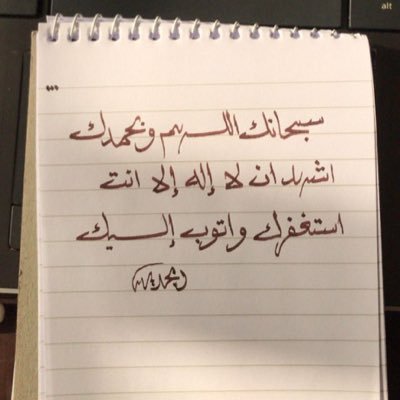 alt
...
سبحانك اللهم وبحمدك
اشهد ان لا إله إلا انت
استغفرك واتوب إليك